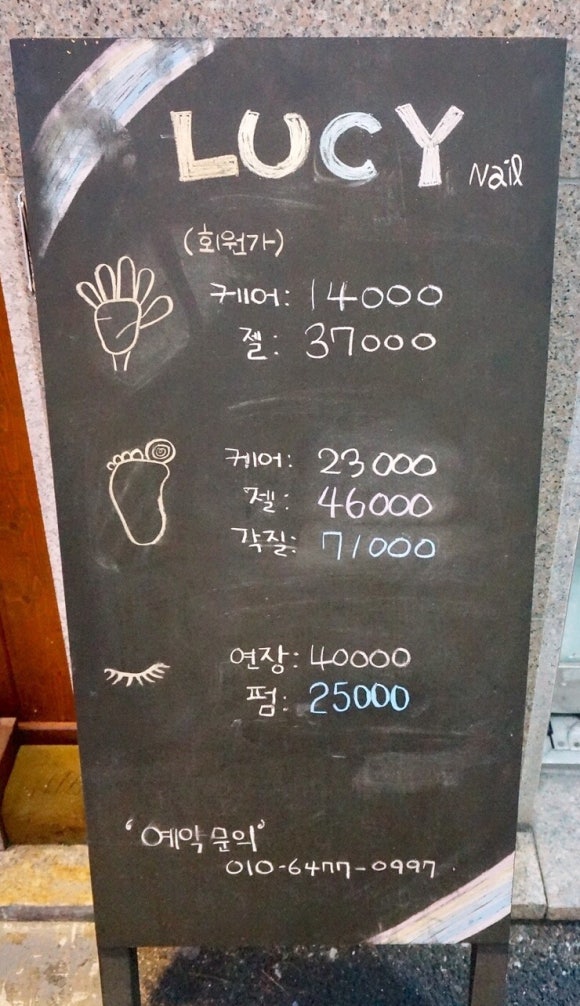 LUCY Nail
(회원가)
케어: 14000
젤: 37000
케어: 23000
젤: 46000
각질: 71000
연장: 40000
펌: 25000
'예약문의'
010-6477-0997